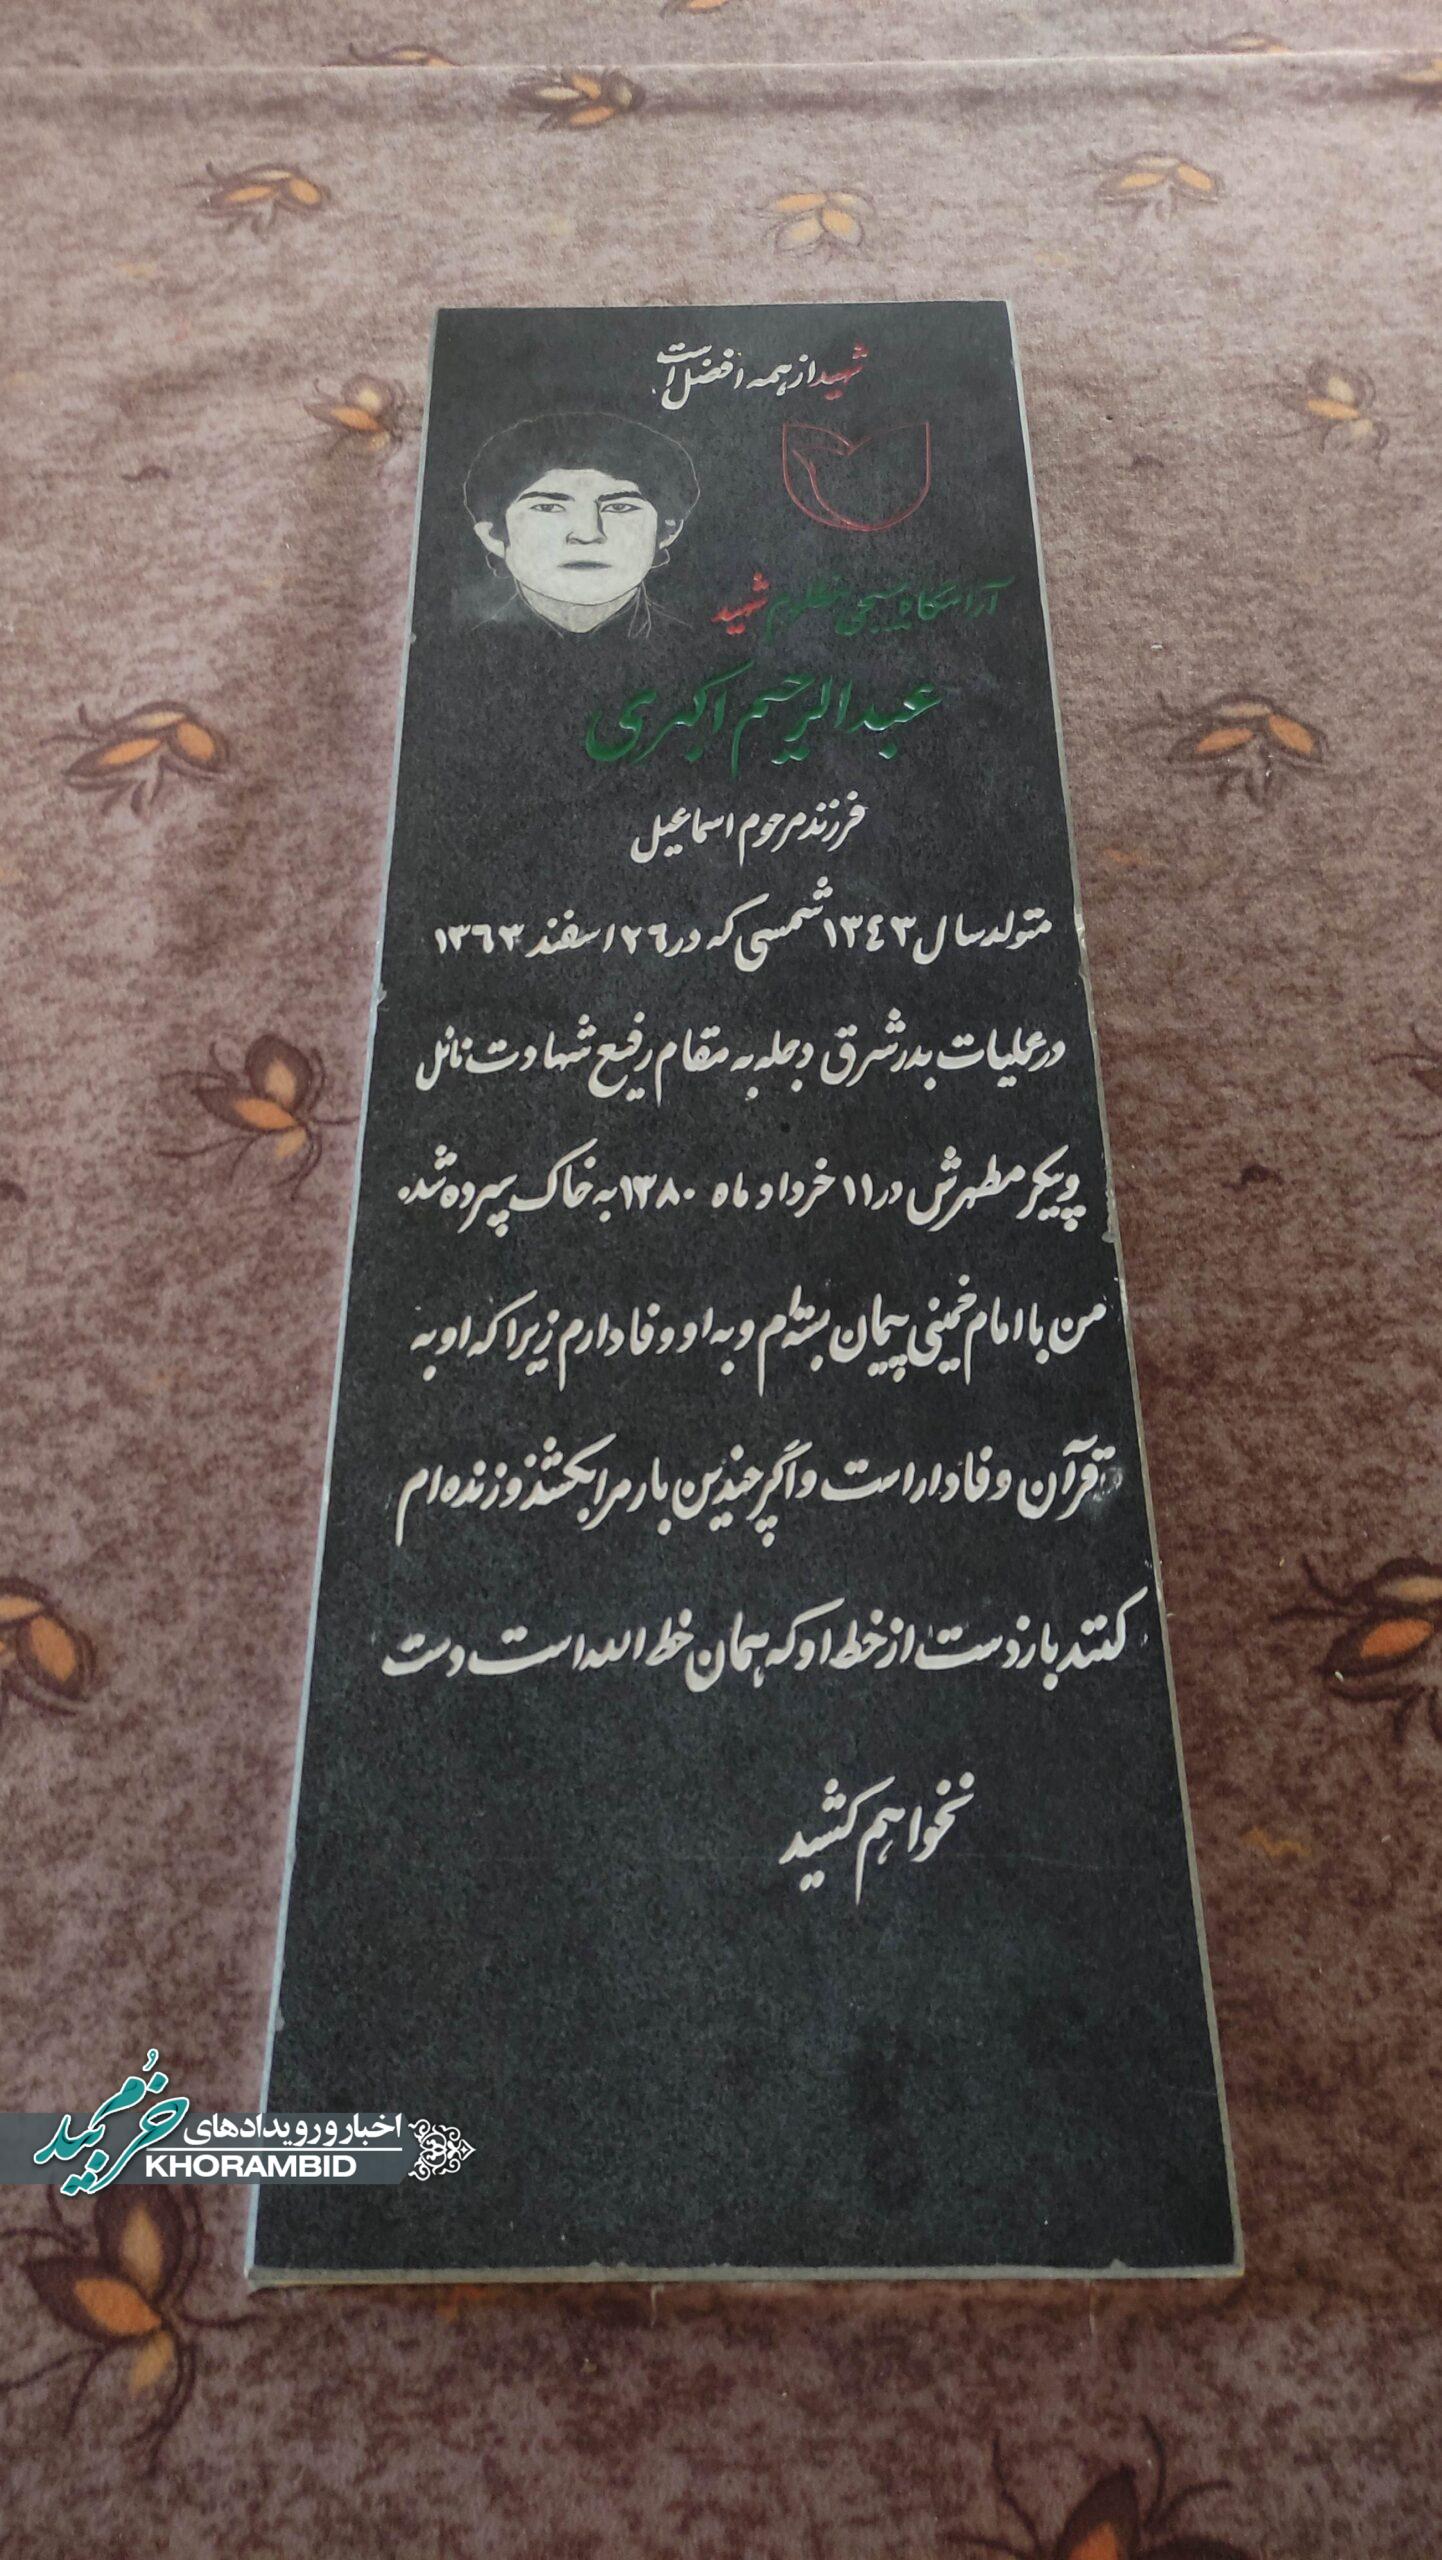 شهید از همه افضل است
آرامگاه بسیجی مظلوم شهید
عبدالرحیم اکبری
فرزند مرحوم اسماعیل
متولد سال ۱۳٤۳ شمسی که در ۲٦ اسفند ۱۳٦۳
در عملیات بدر شرق دجله به مقام رفیع شهادت نائل
و پیکر مطهرش در ۱۱ خرداد ماه ۱۳۸۰ به خاک سپرده شد.
من با امام خمینی پیمان بسته‌ام و به او وفادارم زیرا که او به
قرآن وفادار است و اگر چندین بار مرا بکشند و زنده‌ام
کنند باز دست از خط او که همان خط الله است دست
نخواهم کشید
اخبار و رویدادهای
خرمبید
KHORAMBID